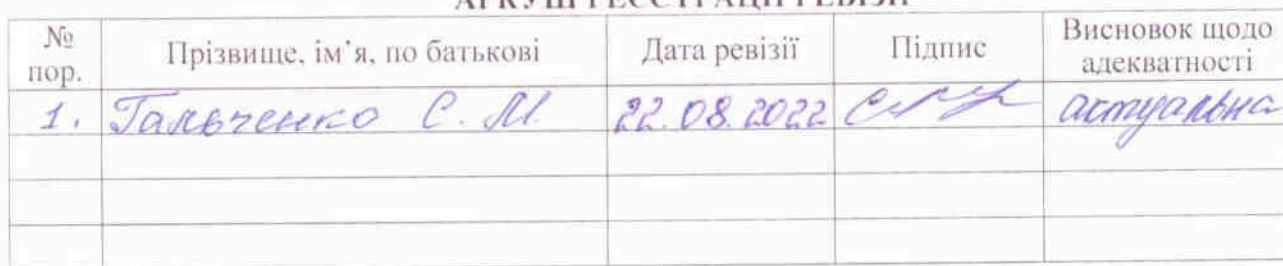 АРКУШ РЕЄСТРАЦІЇ РЕВІЗІЇ
№ пор. Прізвище, ім`я, по батькові Дата ревізії Підпис Висновок щодо адекватності
1. Гальченко С. М. 22.08.2022 актуальна